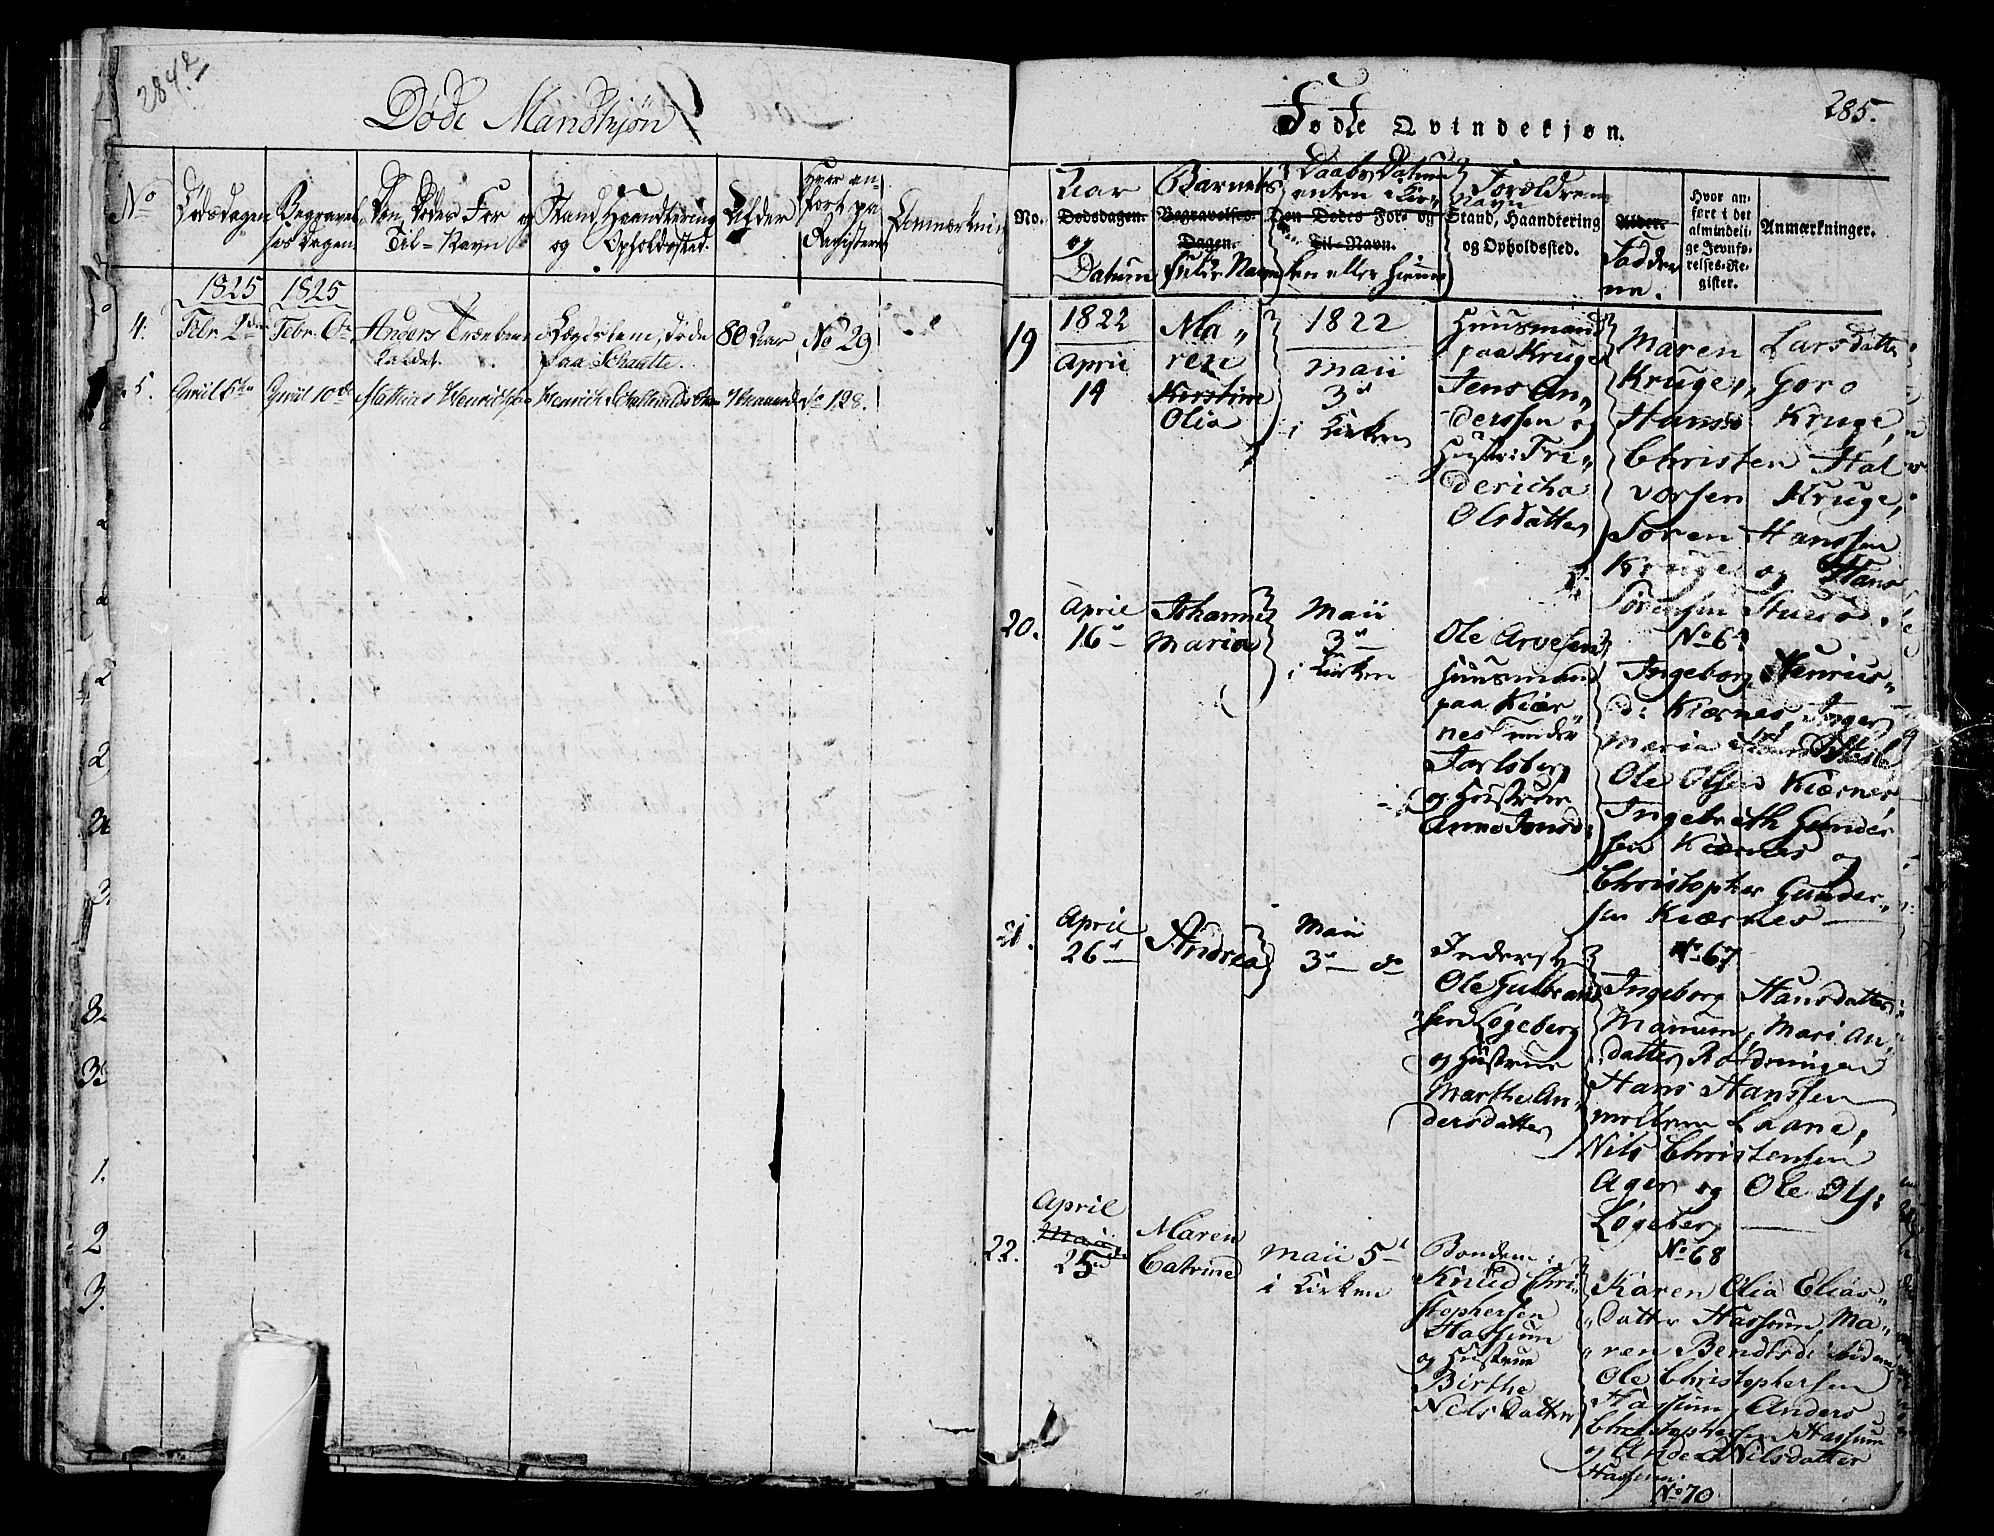 284.
Døde Mandkjön
No
Dödsdagen
Begravel
ses Dagen
Den Dødes For og
Til-Navn
Stand, Haandtering
og Opholdssted.
Alder
Hvor an-
fört paa
Registeret
Anmærkning
1825 1825
4. Febr. 2den Febr. 6te Anders 80 Aar No 29
paa
5. April 5te April 10de Mathias Henrichsen Henrich No 128.
285.
Födte Qvindekjøn.
No.
Aar
Dødsdagen.
og
Datum
Barnets
Begravelses-
Dagen.
fulde Navn
Daabs Datum
enten i Kir-
Den Dødes For- og
Til-Navn.
ken eller hiemme
Forældrenes
Navn
Stand, Haandtering
og Opholdssted.
Alder.
Fadder
ne.
Hvor an-
ført i det
almindeli-
ge Jevnfø-
relses-Re-
gister.
Anmærkninger.
19
1822
April
14
Ma-
ren
Kirstine
Olia
1822
Maii
3d
i Kirken
Huusmand
paa Kruge
Jens An-
derssen og
Hustr: Fri-
dericha
Olsdatter
Maren Larsdatter
Kruge, Goro
Hansd Kruge,
Christen Hal
vorsen Kruge,
Soren Hanssen
Kruge og Hans
Sörensen
No 6
20.
April
16d
Johanne
Maria
Maii
3d
i Kirken
Ole Arvesen
Huusmand
paa Kiær
nes under
Jarlsberg
og Hustrue
Anne Jensd:
Ingeborg Henrics-
d: Kiærnes, Inger
Maria
Ole Olsen Kiærnes
Ingebreth Gunder
sen Kiærnes og
Christopher Gunder-
sen Kiærnes
No 67
21.
April
26d
Andrea
Maii
3d do
Inderst
Ole Gulbrand
sen Løgeberg
og Hustrue
Marthe An-
dersdatter
Ingeborg Hansdatter
Manum, Mari An-
datter Rødningen
Hans Hanssen
Laane,
Nils Christensen
Ager og Ole Ols:
Løgeberg
No 68
22.
April
Maii
25d
Maren
Catrine
Maii 5d
i Kirken
Bondem:
Knud Chri-
stophersen
Hassum
og Hustrue
Birthe
Nils Datter
Karen Olia Elias-
Datter Hassum Ma-
ren Bendtsd:
Ole Christophersen
Hassum, Anders
Christophersen Hassum
og Nilsdatter
Hassum.
No 70